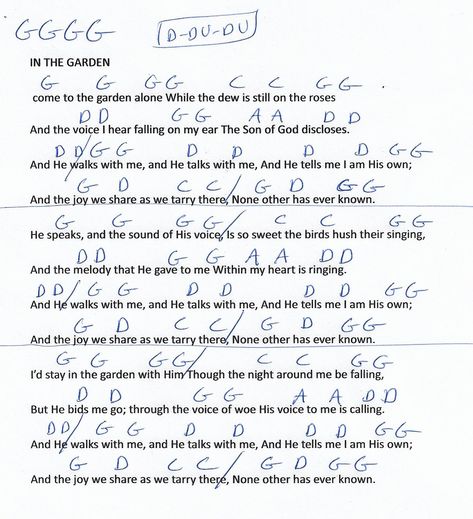 G G G G D-DU-DU
IN THE GARDEN
G G G G C C G G
come to the garden alone While the dew is still on the roses
D D G G A A D D
And the voice I hear falling on my ear The Son of God discloses.
D D / G G D D D D G G
And He walks with me, and He talks with me, And He tells me I am His own;
G D C C / G D G G
And the joy we share as we tarry there, None other has ever known.
G G G G / C C G G
He speaks, and the sound of His voice, Is so sweet the birds hush their singing,
D D G G A A D D
And the melody that He gave to me Within my heart is ringing.
D D / G G D D D D G G
And He walks with me, and He talks with me, And He tells me I am His own;
G D C C / G D G G
And the joy we share as we tarry there, None other has ever known.
G G G G / C C G G
I'd stay in the garden with Him Though the night around me be falling,
D D G G A A D D
But He bids me go; through the voice of woe His voice to me is calling.
D D / G G D D D D G G
And He walks with me, and He talks with me, And He tells me I am His own;
G D C C / G D G G
And the joy we share as we tarry there, None other has ever known.